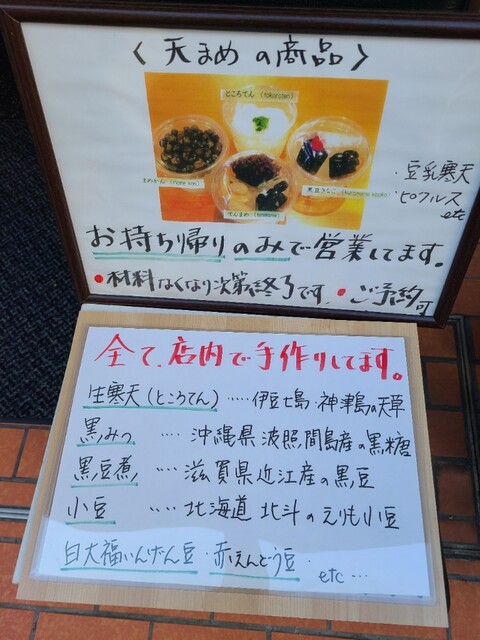 〈 天まめ の商品 〉
ところてん (tokoroten)
まめかん (mame kan)
黒豆きなこ
てんまめ (tenmame)
・豆乳寒天
・ピクルス
etc
お持ち帰りのみで営業してます。
・材料なくなり次第終了です ・ご予約可
全て、店内で手作りしてます。
生寒天(ところてん) ・・・・・ 伊豆七島・神津島の天草
黒みつ ・・・ 沖縄県 波照間島産の黒糖
黒豆煮 ・・・・ 滋賀県近江産の黒豆
小豆 ・・・・ 北海道 北斗のえりも小豆
白大福いんげん豆・赤えんどう豆・
etc・・・